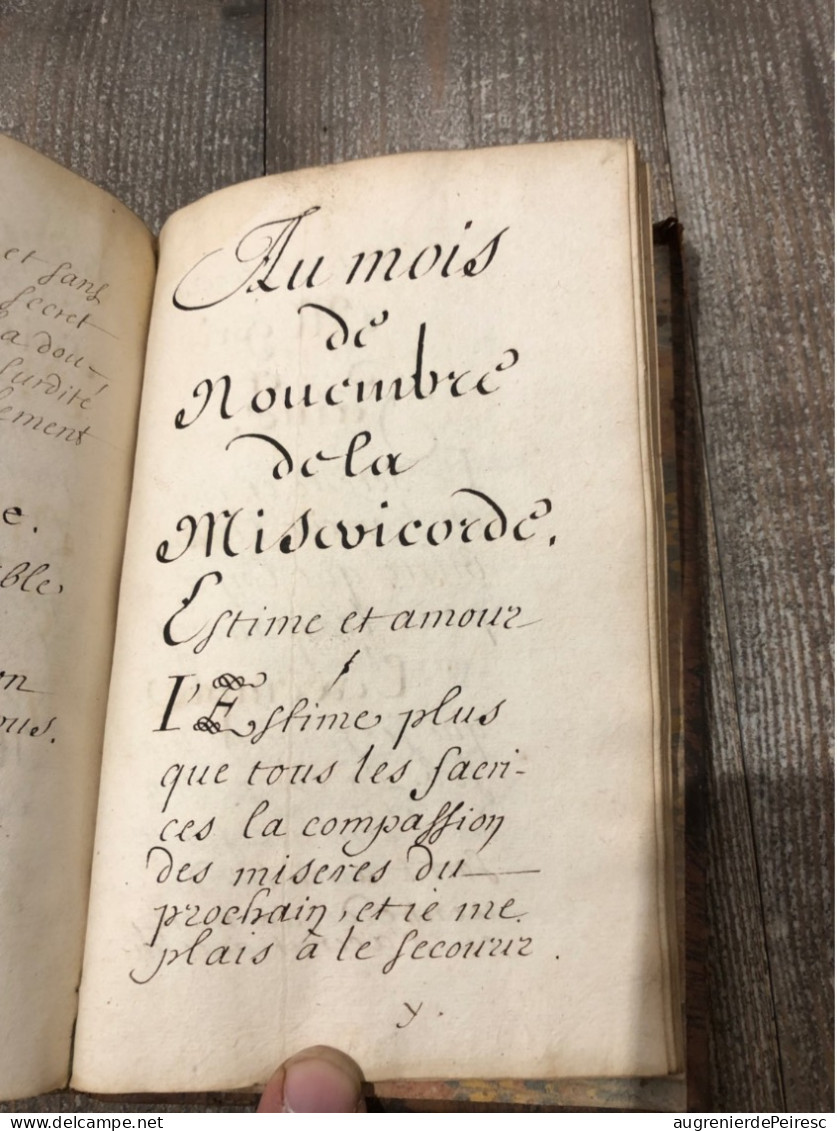 et sans
secret
a dou-
surdité
lement
e.
ible
on
ous.
Au mois
de
Nouembre
de la
Misericorde.
Estime et amour
I'Estime plus
que tous les sacri-
ces la compassion
des miseres du
prochain, et ie me
plais a le secourir.
y.
delcampe.net
augrenierdePeiresc